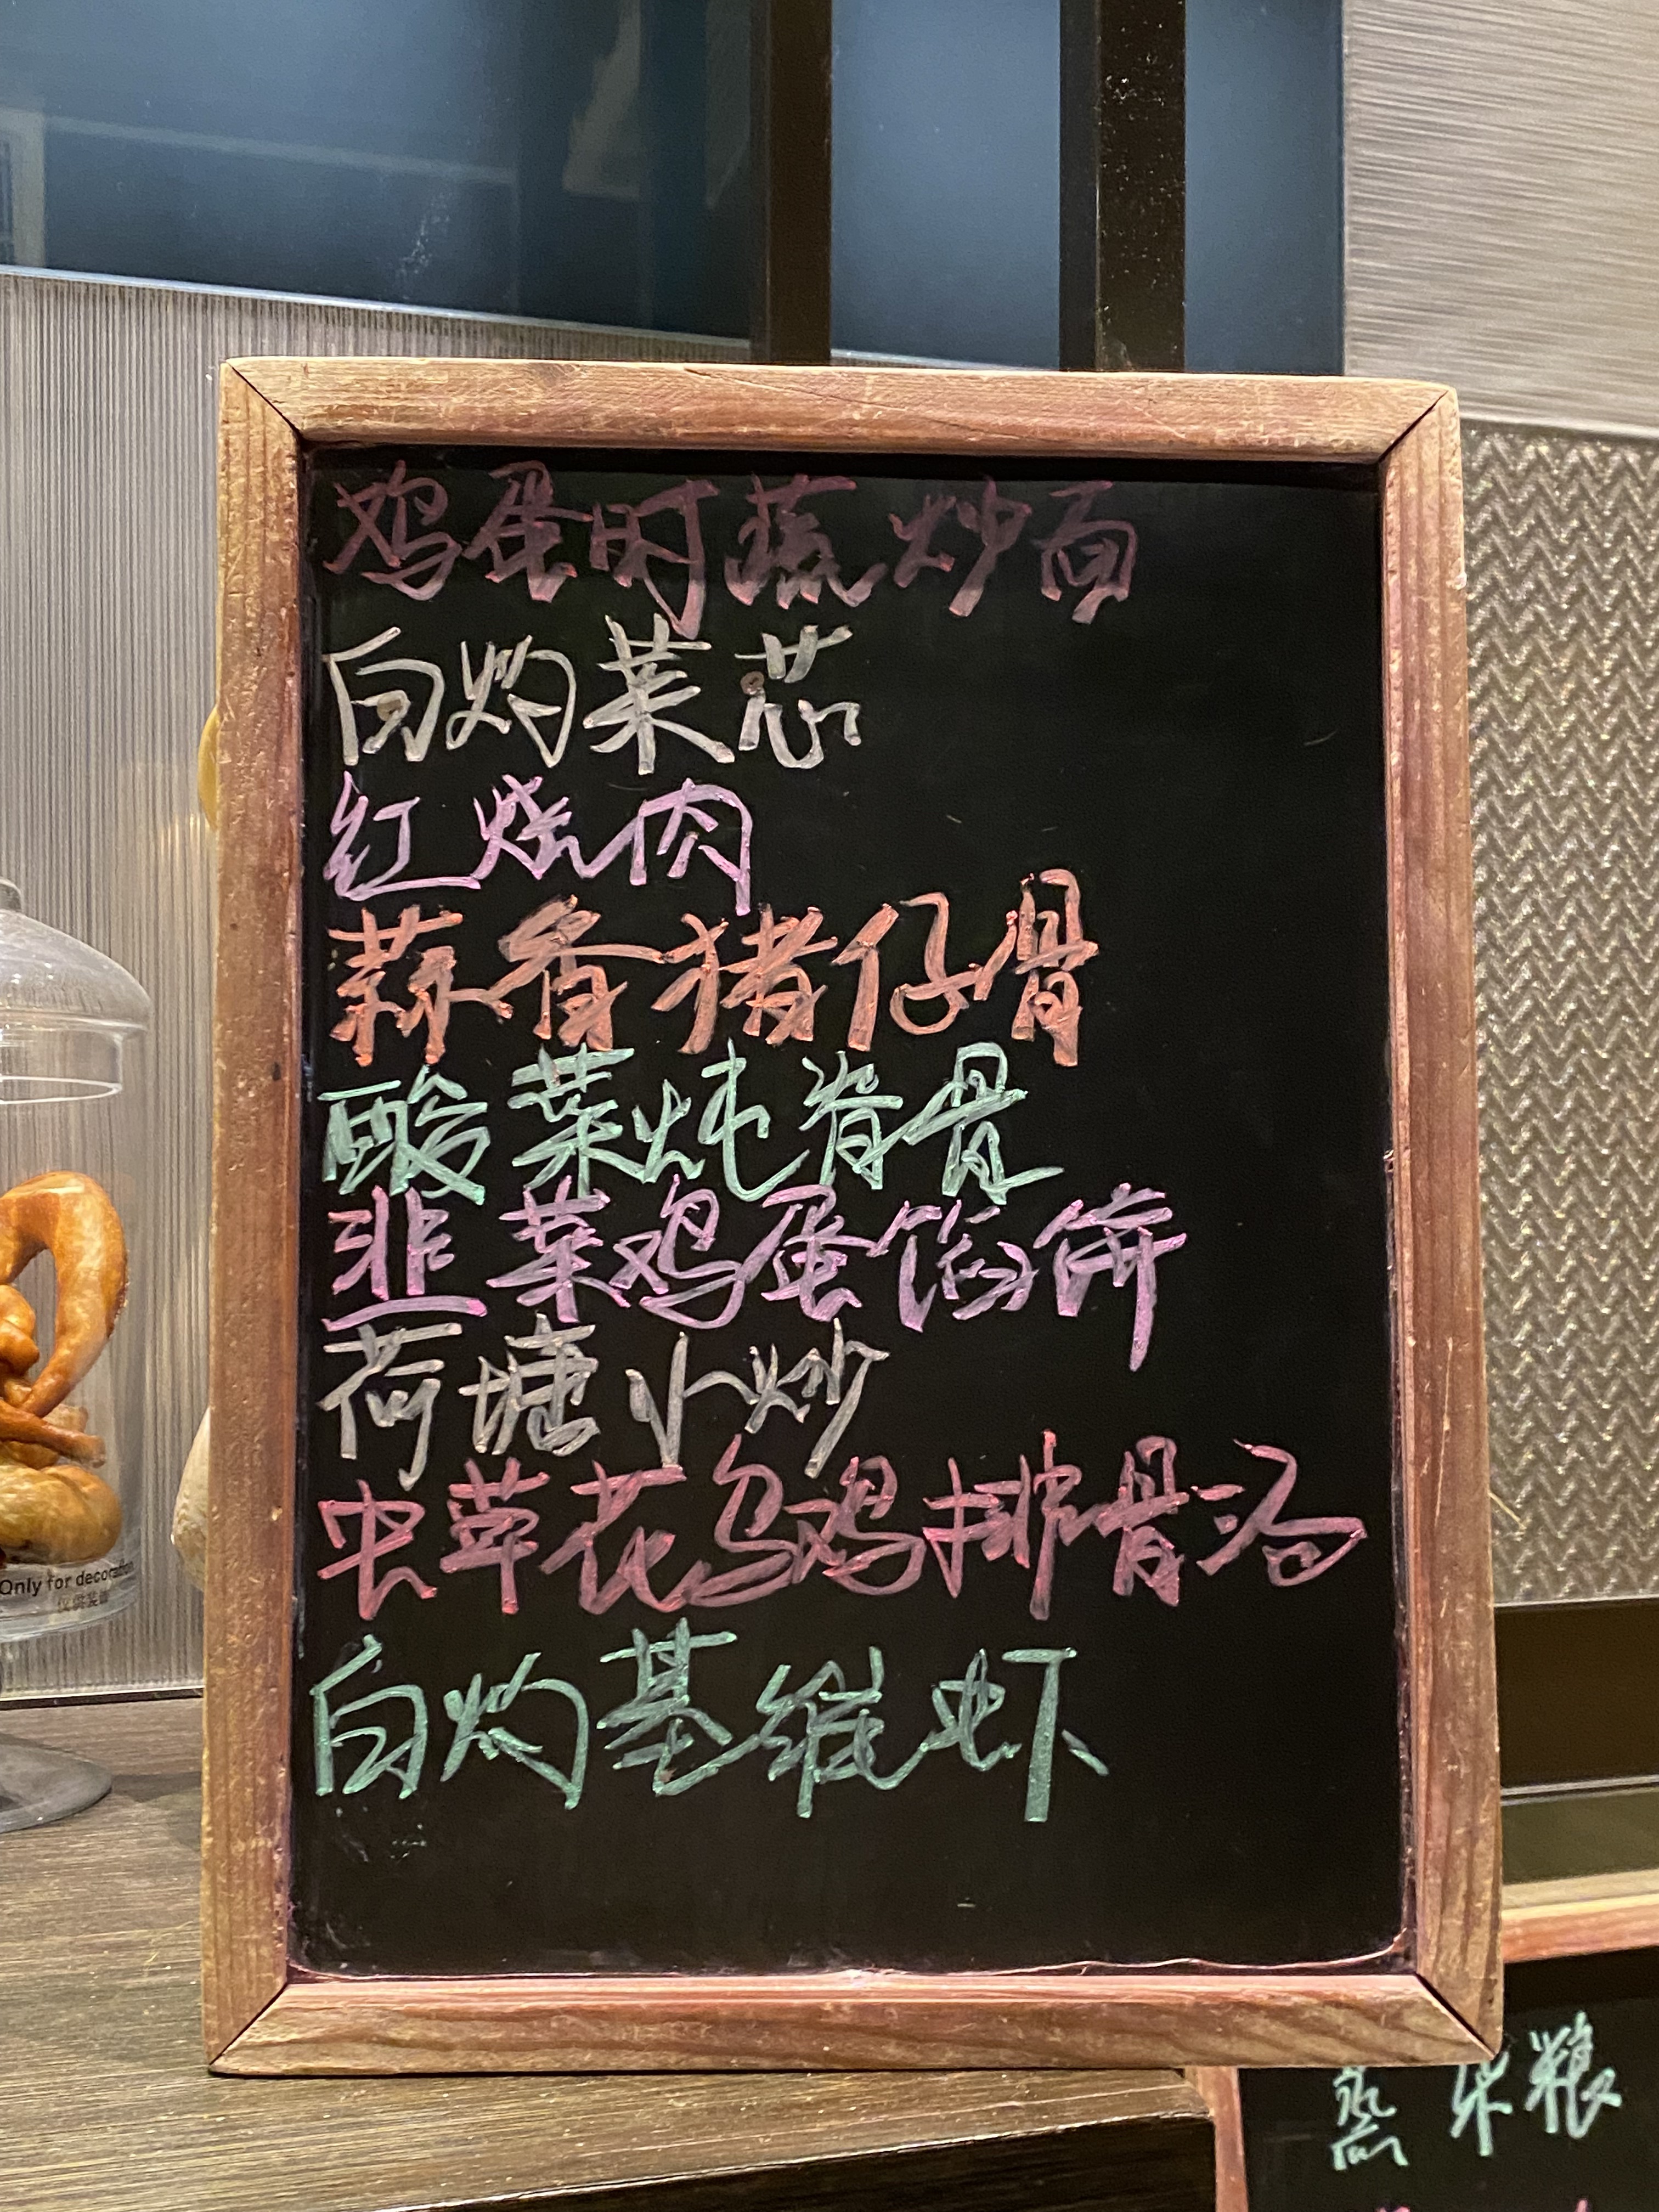 鸡蛋时蔬炒面
白灼菜芯
红烧肉
蒜香猪仔骨
酸菜炖脊骨
韭菜鸡蛋馅饼
荷塘小炒
虫草花乌鸡排骨汤
白灼基维虾
Only for decoration
仅供装饰
蒸 杂粮